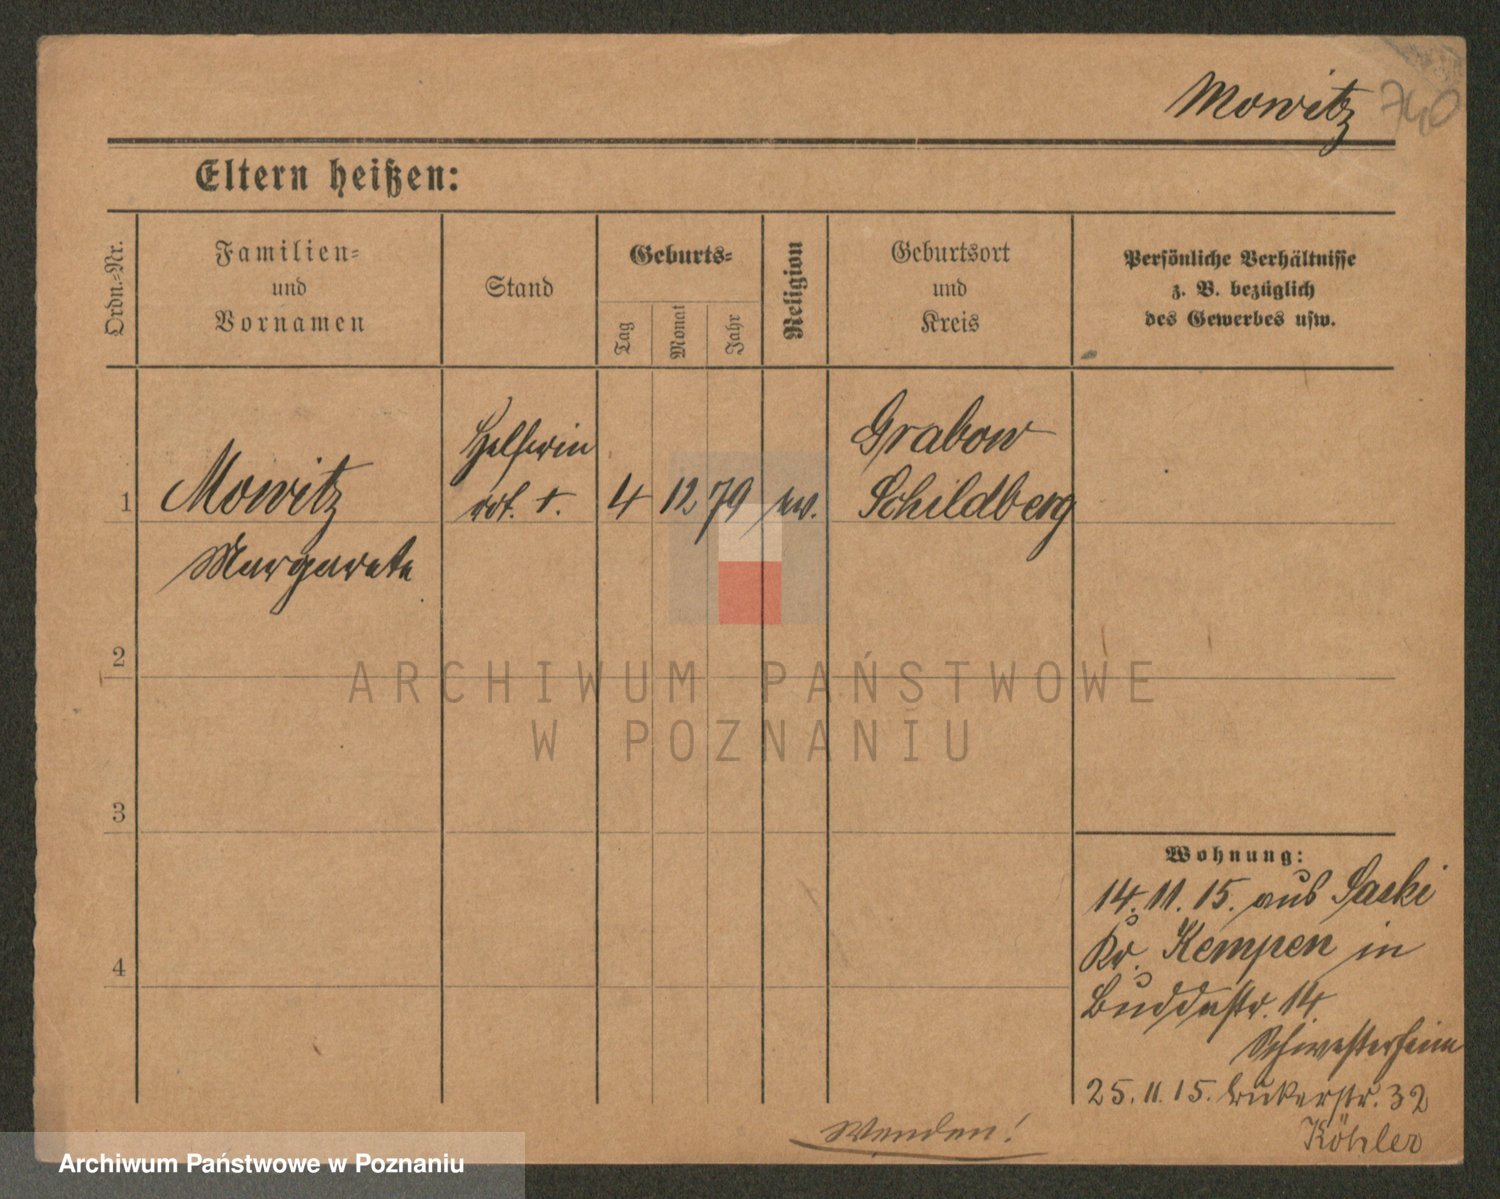 Mowitz 740
Eltern heißen:
Ordn.-Nr.
Familien-
und
Vornamen
Stand
Geburts-
Tag
Monat
Jahr
Religion
Geburtsort
und
Kreis
Persönliche Verhältnisse
z. B. bezüglich
des Gewerbes usw.
1
Mowitz
Margarete
Helferin
rot. †.
4
12
79
ev.
Grabow
Schildberg
2
3
4
Wohnung:
14. 11. 15. aus
Kr. Kempen in
Buddestr. 14.
Schwesterheim
25. 11. 15. 32
Köhler
Wenden!
ARCHIWUM PAŃSTWOWE
W POZNANIU
Archiwum Państwowe w Poznaniu